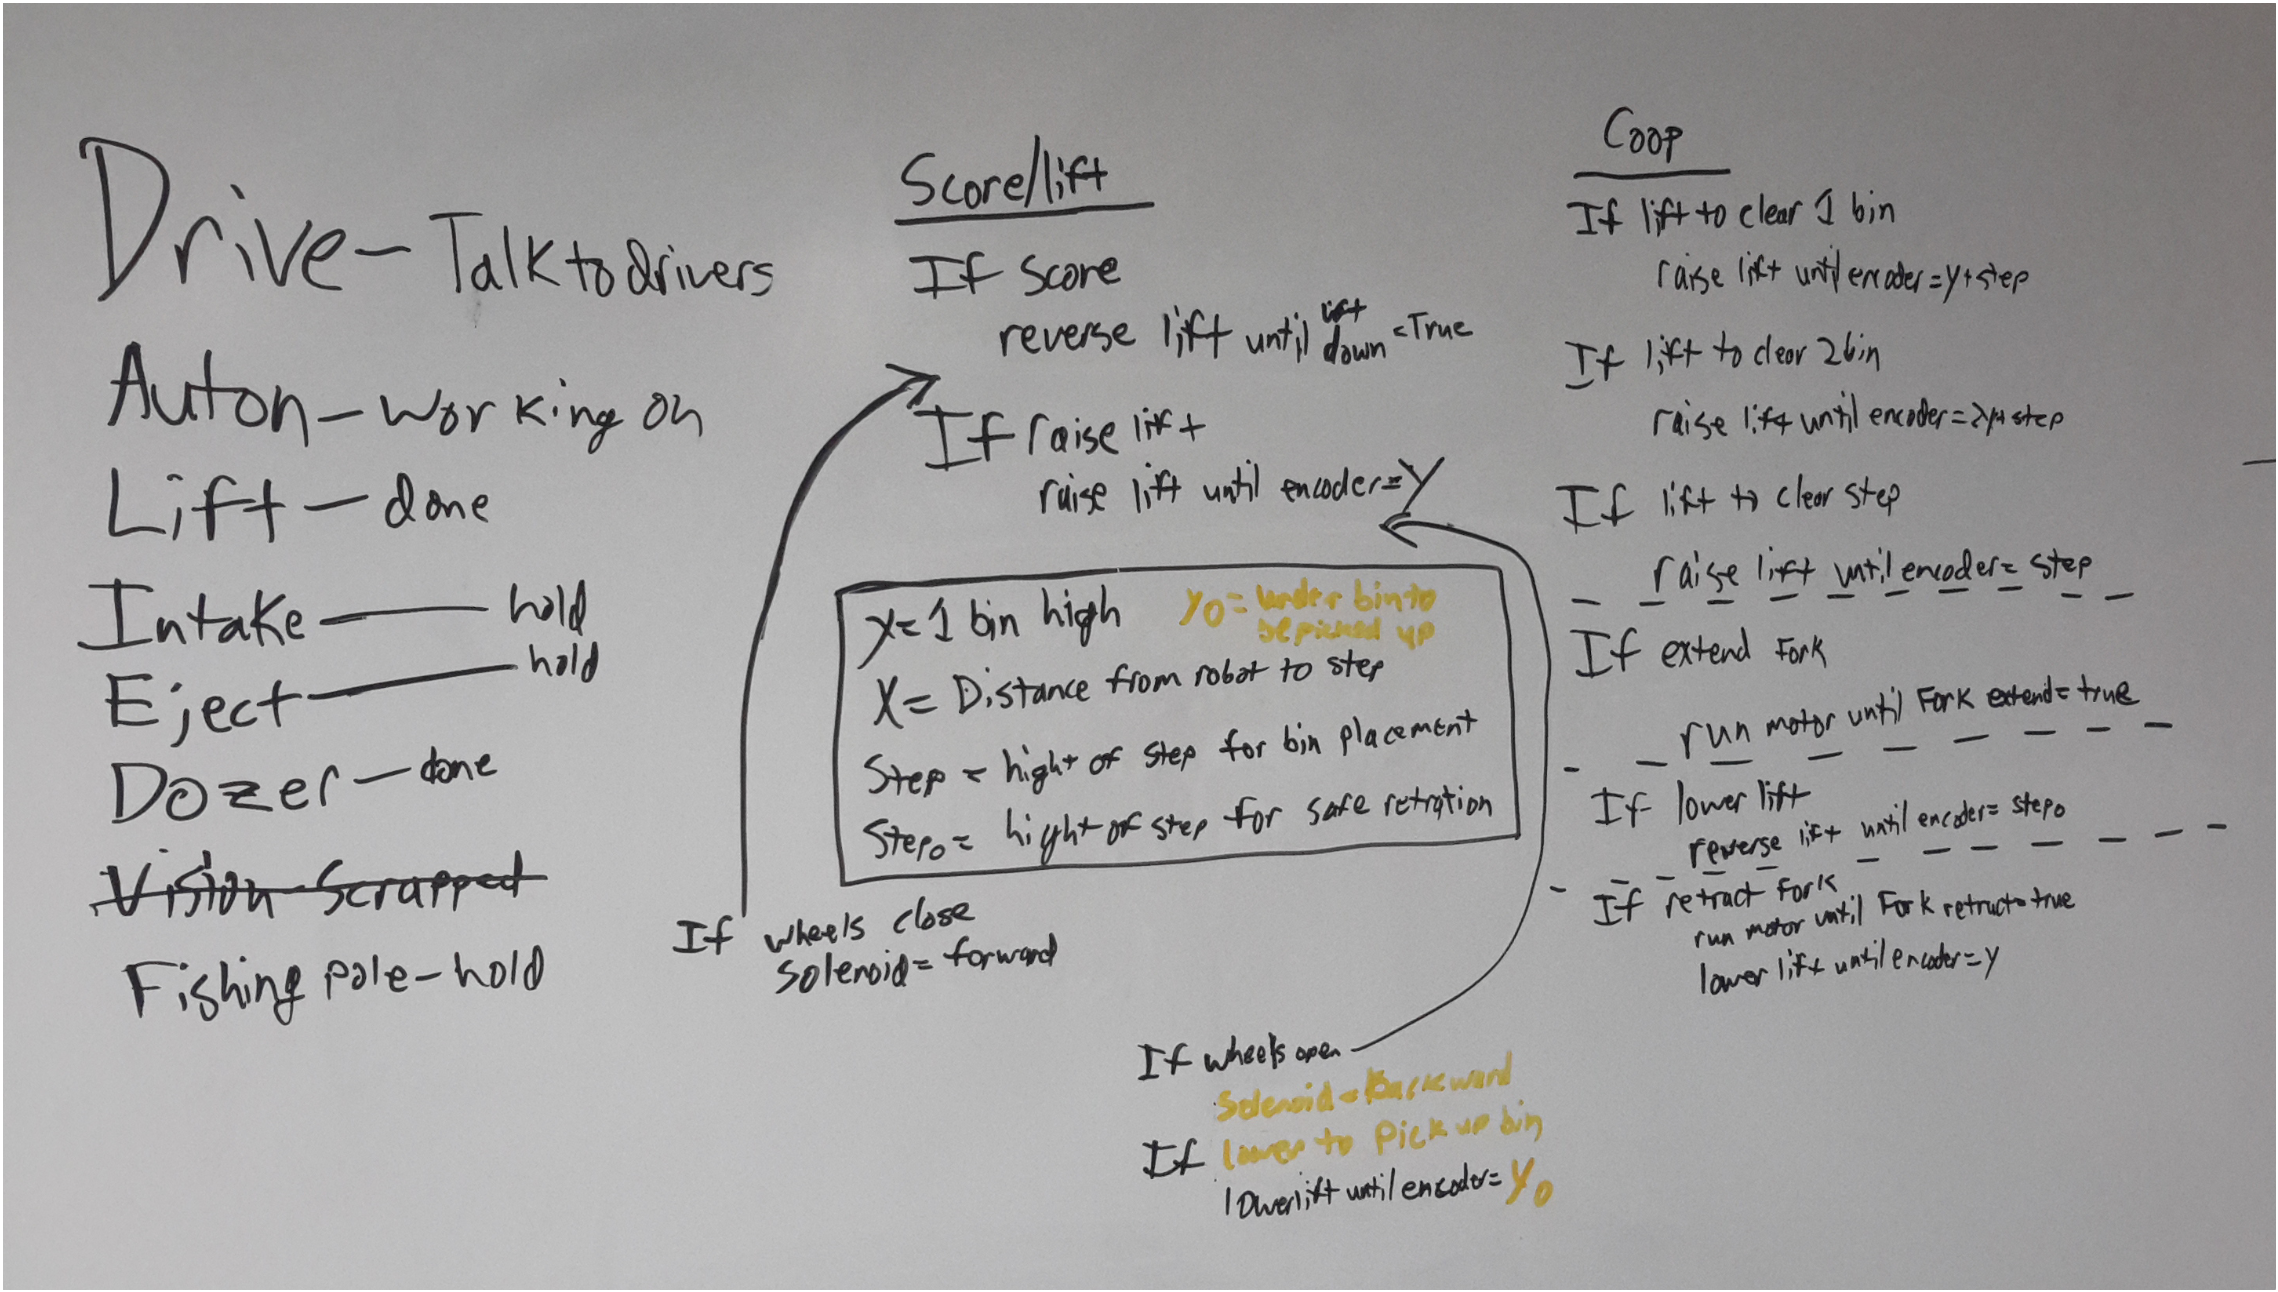 Drive - Talk to drivers
Auton - working on
Lift - done
Intake - hold
Eject - hold
Dozer - done
Vision - Scrapped
Fishing pole - hold
Score/lift
If score
reverse lift until lift down = True
If raise lift
raise lift until encoder = Y
y = 1 bin high
yo = under bin to
be picked up
X = Distance from robot to step
Step = hight of step for bin placement
Stepo = hight of step for safe retration
If wheels close
Solenoid = forward
If wheels open
Solenoid = Backward
If lower to Pick up bin
lower lift until encoder = Yo
Coop
If lift to clear 1 bin
raise lift until encoder = y + step
If lift to clear 2 bin
raise lift until encoder = 2y + step
If lift to clear step
raise lift until encoder = step
If extend Fork
run motor until Fork extend = true
If lower lift
reverse lift until encoder = stepo
If retract Fork
run motor until Fork retract = true
lower lift until encoder = y